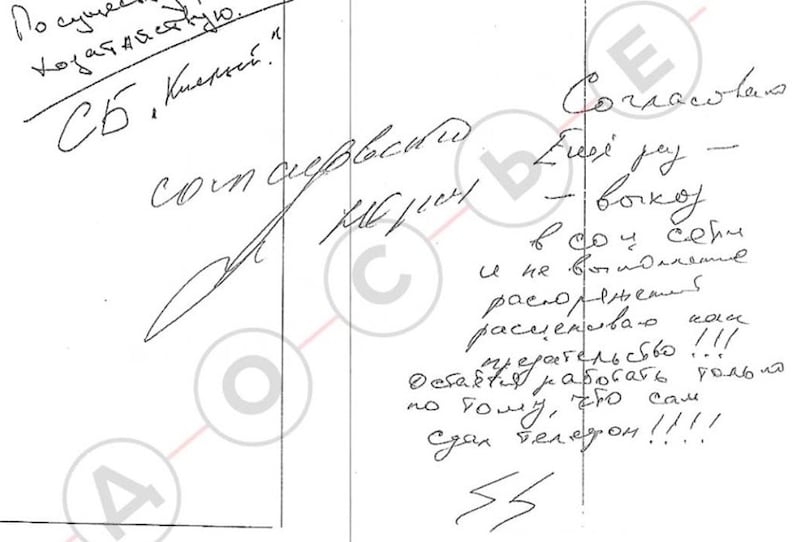 По существу
ходатайствую.
СБ
согласовано
Согласовано
Ещё раз —
— выход
в соц сети
и не выполнение
распоряжений
расцениваю как
предательство!!!
Остаётся работать только
по тому, что сам
сдал телефон!!!!
ДОСЬЕ